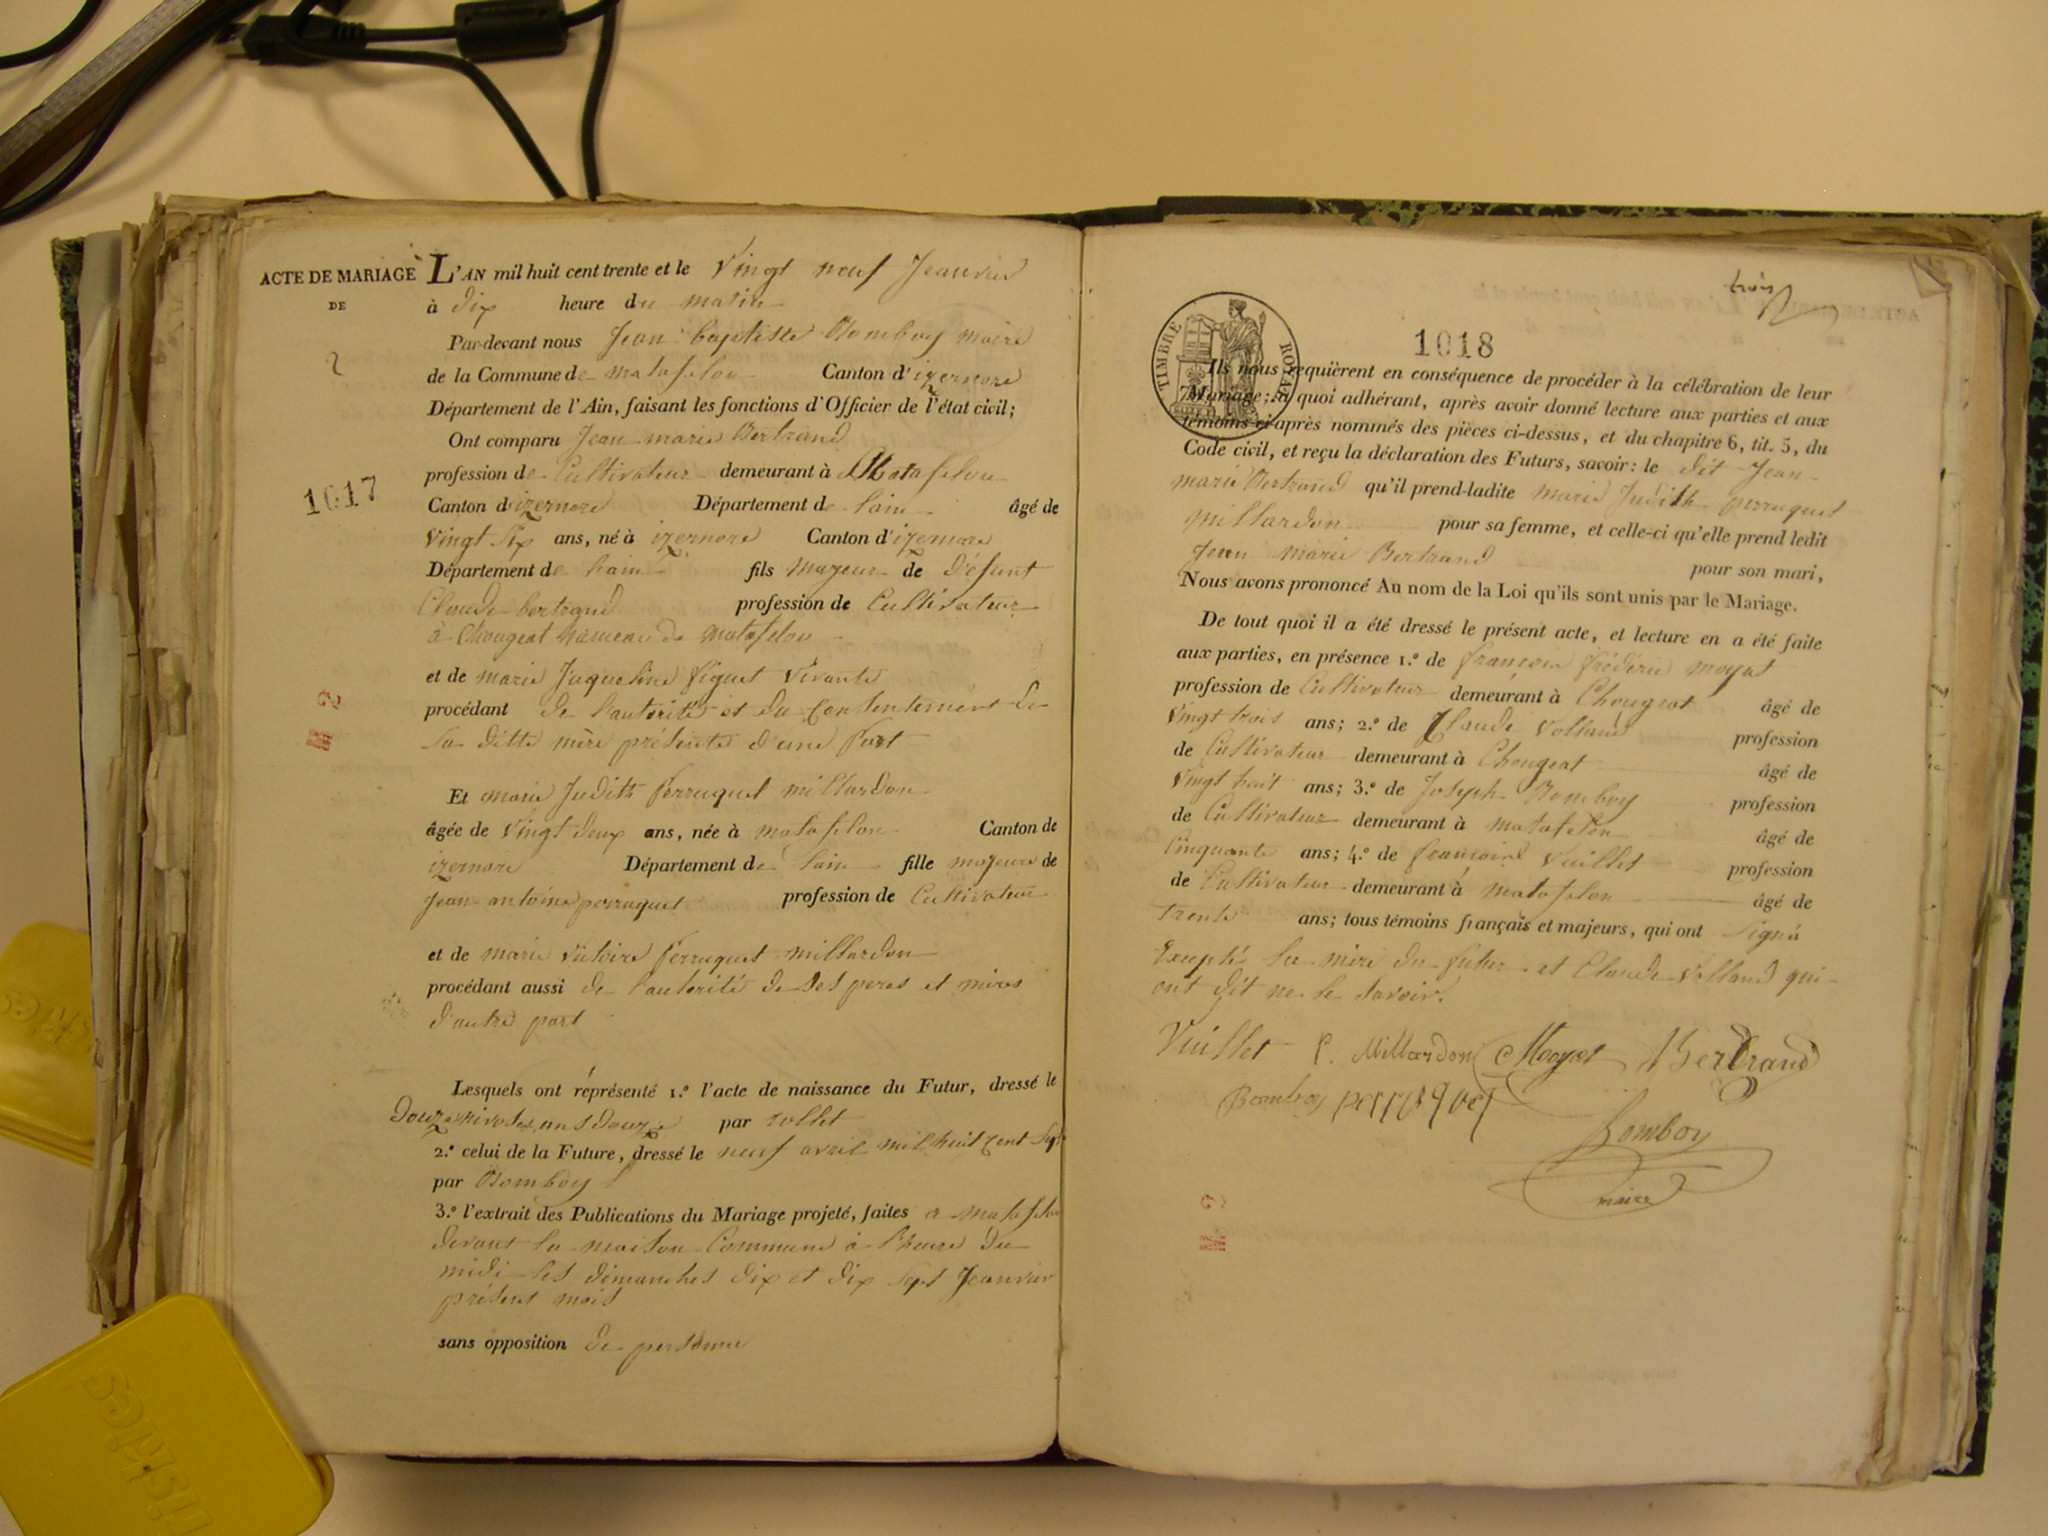 ACTE DE MARIAGE
DE
2
1017
L'AN mil huit cent trente et le Vingt neuf Jeanvier
à dix heure du matin
Par-devant nous Jean baptiste Bomboy maire
de la Commune de matafelon Canton d'izernore
Département de l'Ain, faisant les fonctions d'Officier de l'état civil;
Ont comparu Jean marie Bertrand
profession de Cultivateur demeurant à Matafelon
Canton d'izernore Département de lain âgé de
Vingt Six ans, né à izernore Canton d'izernore
Département de lain fils majeur de défunt
Claude bertrand profession de Cultivateur
à Chougeat hameau de matafelon
et de marie Juqueline figuet vivante
procédant de l'autorité et du Contentement de
sa ditte mère présente d'une part
Et marie Judith perruquet millardon
âgée de vingt deux ans, née à matafelon Canton de
izernore Département de lain fille majeure de
jean antoine perruquet profession de Cultivateur
et de marie victoire perruquet millardon
procédant aussi de l'autorité de ses peres et mires
d'autre part
Lesquels ont réprésenté 1.º l'acte de naissance du Futur, dressé le
douze nivose, an douze par rollet
2.º celui de la Future, dressé le neuf avril mil huit cent Sept
par Bomboy
3.º l'extrait des Publications du Mariage projeté, faites a matafelon
devant la maison Commune à l'heure du
midi les dimanches dix et dix Sept Jeanvier
présent mois
sans opposition de personne
trois
1018
TIMBRE ROYAL
Ils nous requièrent en conséquence de procéder à la célébration de leur
Mariage; à quoi adhérant, après avoir donné lecture aux parties et aux
témoins ci-après nommés des pièces ci-dessus, et du chapitre 6, tit. 5, du
Code civil, et reçu la déclaration des Futurs, savoir: le dit Jean
marie Bertrand qu'il prend-ladite marie Judith perruquet
millardon pour sa femme, et celle-ci qu'elle prend ledit
Jean marie Bertrand pour son mari,
Nous avons prononcé Au nom de la Loi qu'ils sont unis par le Mariage.
De tout quoi il a été dressé le présent acte, et lecture en a été faite
aux parties, en présence 1.º de françois frédéric moyat
profession de Cultivateur demeurant à Chougeat âgé de
Vingt trois ans; 2.º de Claude Volland profession
de Cultivateur demeurant à Chougeat âgé de
Vingt huit ans; 3.º de Joseph Bomboy profession
de Cultivateur demeurant à matafelon âgé de
Cinquante ans; 4.º de françois Vuillet profession
de Cultivateur demeurant à matafelon âgé de
trente ans; tous témoins français et majeurs, qui ont signé
Exceptés la mire du futur et Claude Volland qui
ont dit ne le savoir.
Vuillet P. Millardon Moyat Bertrand
Bomboy perruquet
Bomboy
maire